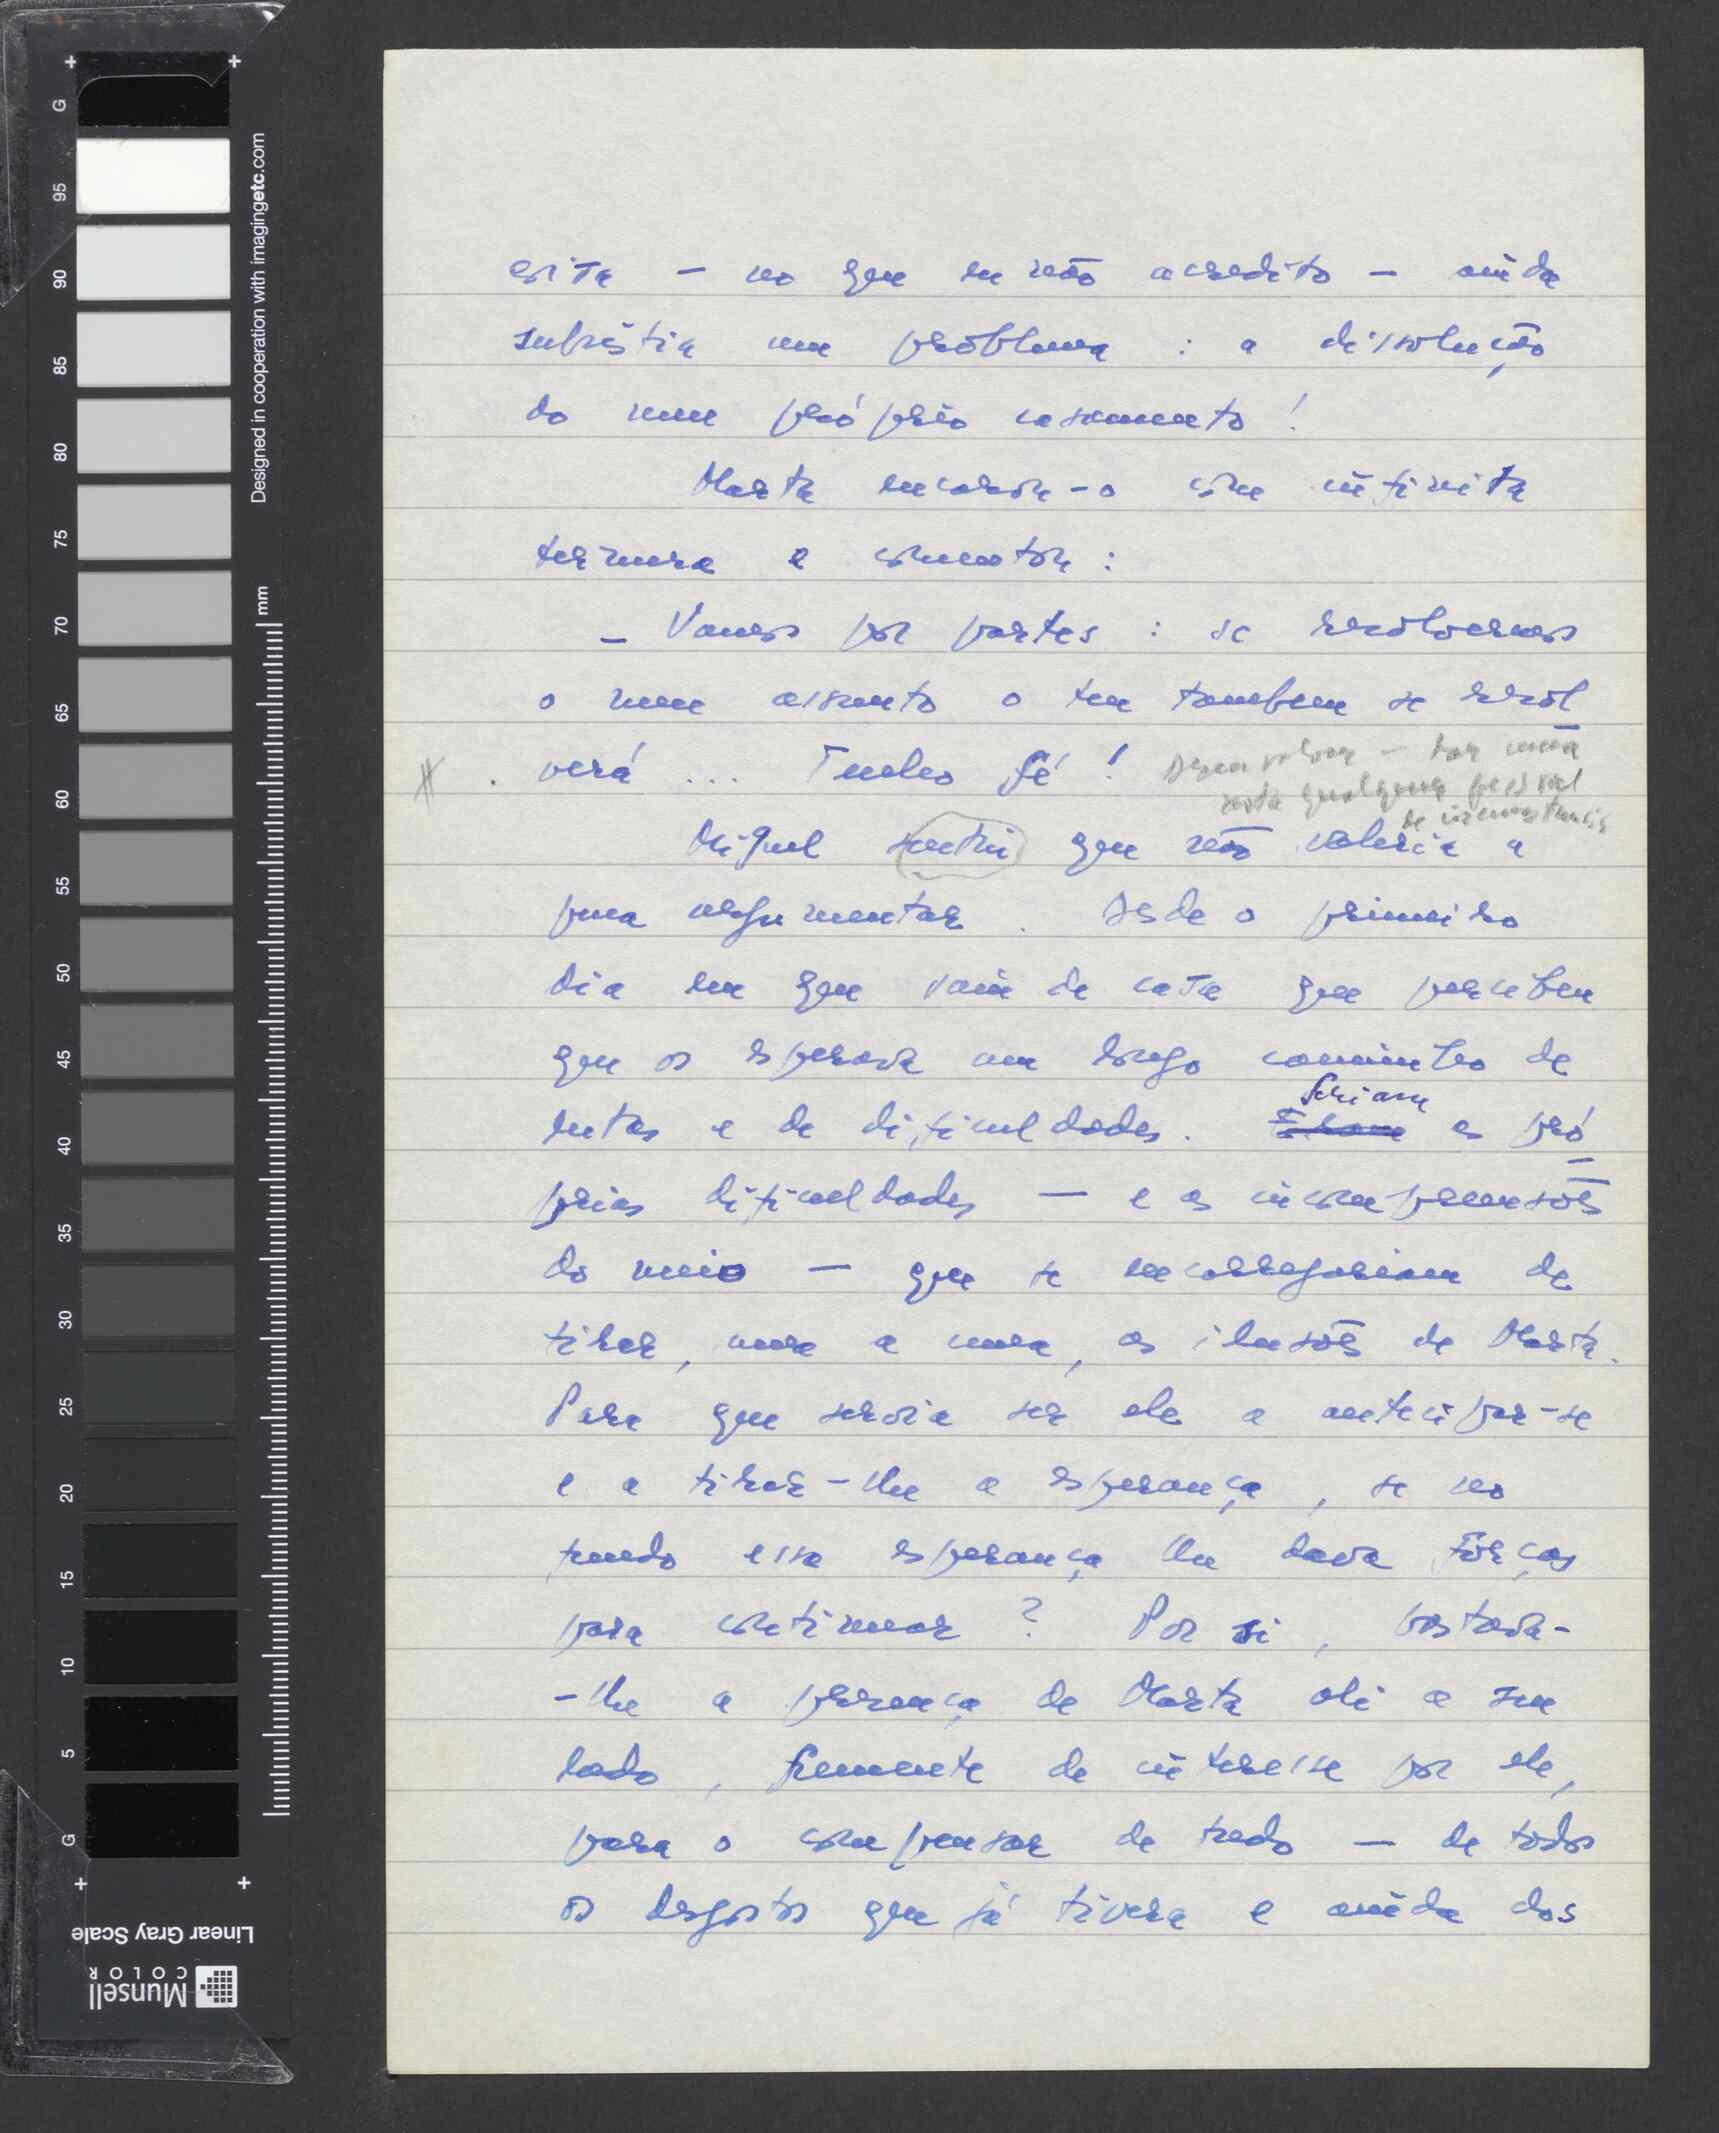 G 95 90 85 80 75 70 65 60 55 50 45 40 35 30 25 20 15 10 5 G
Designed in cooperation with imagingetc.com
mm
Linear Gray Scale
Munsell
COLOR
esita — no que eu não acredito — ainda
subsistia um problema : a dissolução
do meu próprio casamento !
Marta encarou-o com infinita
ternura e comentou :
— Vamos por partes : se resolvermos
o meu assunto o teu tambem se resol
verá ... Tenho fé !
desenvolver — dar uma
nota qualquer pessoal
de circunstancia
Miguel sentiu que não valeria a
pena argumentar . Desde o primeiro
dia em que saiu de casa que percebeu
que os esperava um longo caminho de
lutas e de dificuldades . Seriam as pró
prias dificuldades — e as incompreensões
do meio — que se encarregariam de
tirar, uma a uma, as ilusões de Marta.
Para que servia ser ele a antecipar-se
e a tirar-lhe a esperança , se no
fundo essa esperança lhe dava fôrças
para continuar ? Por si , bastava-
-lhe a presença de Marta ali a seu
lado , fremente de interesse por ele,
para o compensar de tudo — de todos
os desgostos que já tivera e ainda dos